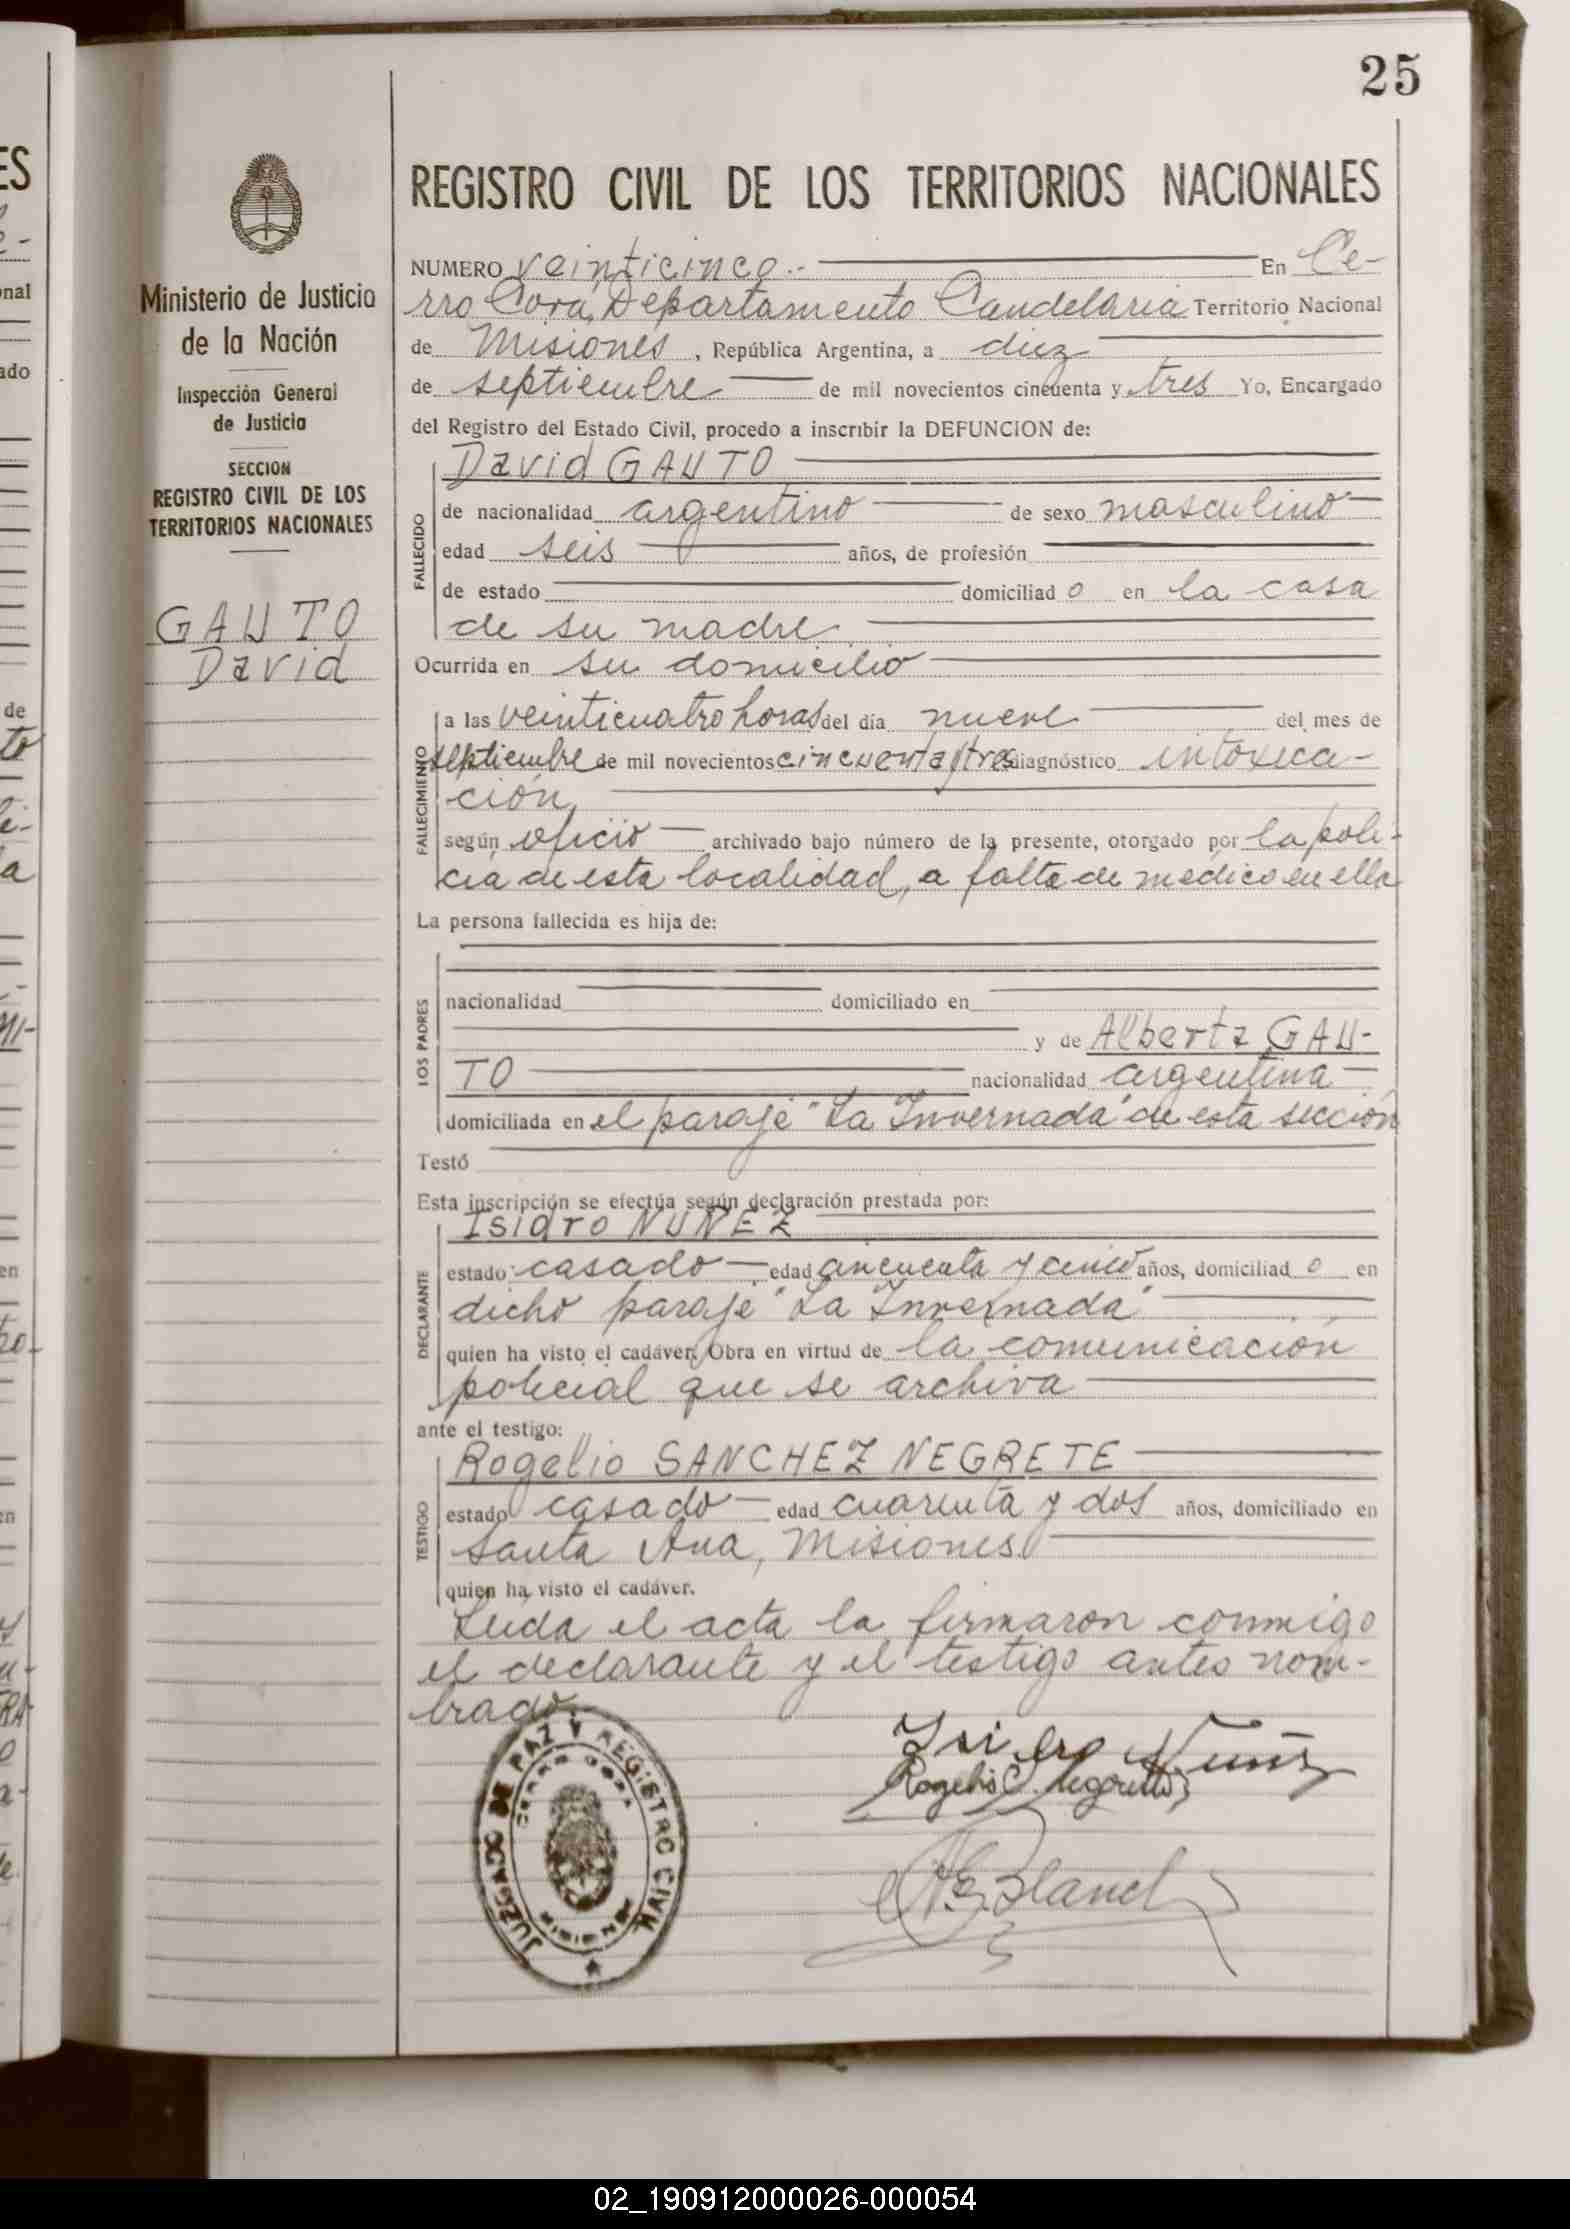 25
REGISTRO CIVIL DE LOS TERRITORIOS NACIONALES
Ministerio de Justicia
de la Nación
Inspección General
de Justicia
SECCION
REGISTRO CIVIL DE LOS
TERRITORIOS NACIONALES
GAUTO
David
NUMERO veinticinco.- En Ce-
rro Cora, Departamento Candelaria Territorio Nacional
de Misiones, República Argentina, a diez
de septiembre de mil novecientos cincuenta y tres Yo, Encargado
del Registro del Estado Civil, procedo a inscribir la DEFUNCION de:
David GAUTO
FALLECIDO
de nacionalidad argentino de sexo masculino
edad seis años, de profesión
de estado domiciliado en la casa
de su madre
Ocurrida en su domicilio
FALLECIMIENTO
a las veinticuatro horas del día nueve del mes de
septiembre de mil novecientos cincuenta y tres diagnóstico intoxica-
ción
según oficio archivado bajo número de la presente, otorgado por la poli-
cía de esta localidad, a falta de médico en ella
La persona fallecida es hija de:
LOS PADRES
nacionalidad domiciliado en
y de Alberta GAU-
TO nacionalidad argentina
domiciliada en el paraje "La Invernada" de esta sección
Testó
Esta inscripción se efectúa según declaración prestada por:
Isidro NUÑEZ
DECLARANTE
estado casado edad cincuenta y cinco años, domiciliado en
dicho paraje "La Invernada"
quien ha visto el cadáver. Obra en virtud de la comunicación
policial que se archiva
ante el testigo:
Rogelio SANCHEZ NEGRETE
TESTIGO
estado casado edad cuarenta y dos años, domiciliado en
Santa Ana, Misiones
quien ha visto el cadáver.
Leída el acta la firmaron conmigo
el declarante y el testigo antes nom-
brado.
Isidro Nuñez
JUZGADO DE PAZ Y REGISTRO CIVIL
02_190912000026-000054